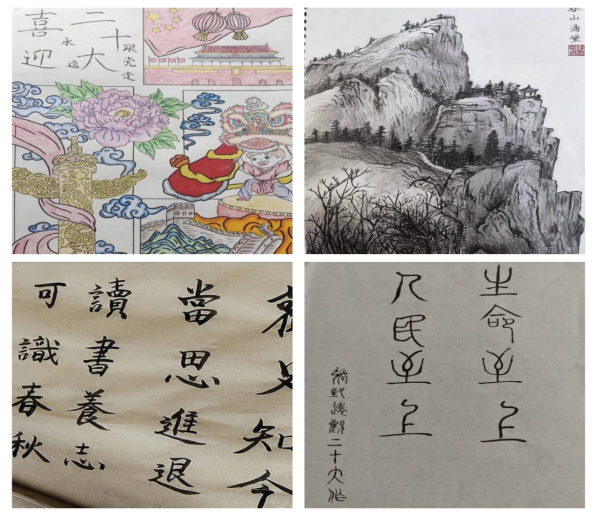 喜迎
二十大
永远
跟党走
山
史知今
當思進退
讀書養志
可識春秋
生命至上
人民至上
二十大作